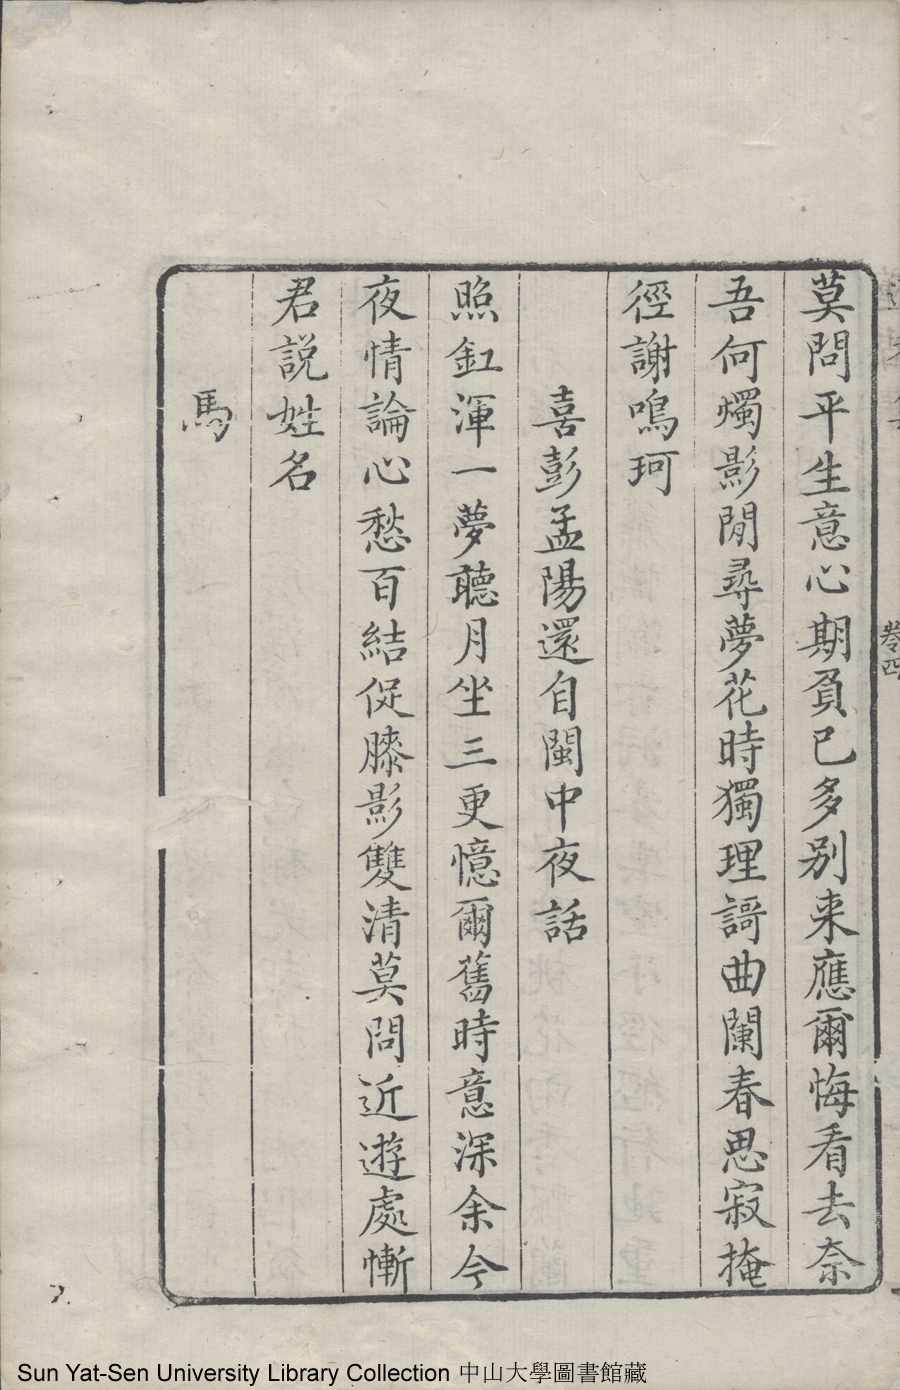 莫問平生意心期負已多別来應爾悔看去奈
吾何燭影閒尋夢花時獨理謌曲闌春思寂掩
徑謝鳴珂
喜彭孟陽還自閩中夜話
照釭渾一夢聽月坐三更憶爾舊時意深余今
夜情論心愁百結促膝影雙清莫問近遊處慚
君説姓名
馬
卷四
Sun Yat-Sen University Library Collection 中山大學圖書館藏